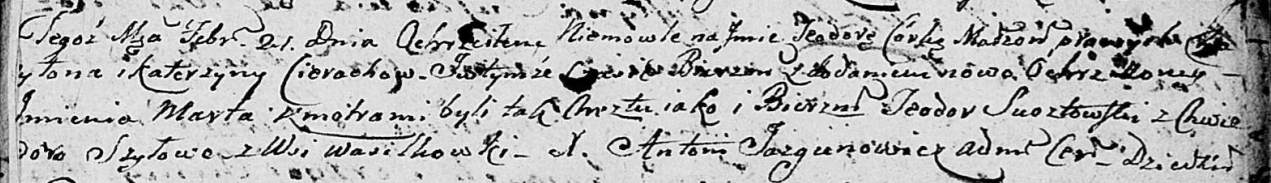 Tegoż Mca Febr. 21. Dnia Ochrzciłem Niemowle na Jmie Teodorę Corkę Małżon prawych
yłona i Katerzyny Cierachow. Jstymże czasie Bierzm z dodaniem nowo Ochrzczoney
Jmienia Marta Kmotrami byli tak Chrztu iako i Bierzm Teodor Suozłowski z Chwie
doro Szyłowo z Wsi Wasilkow ki - X. Antoni Jazgunowicz adm Cer Dziedzi